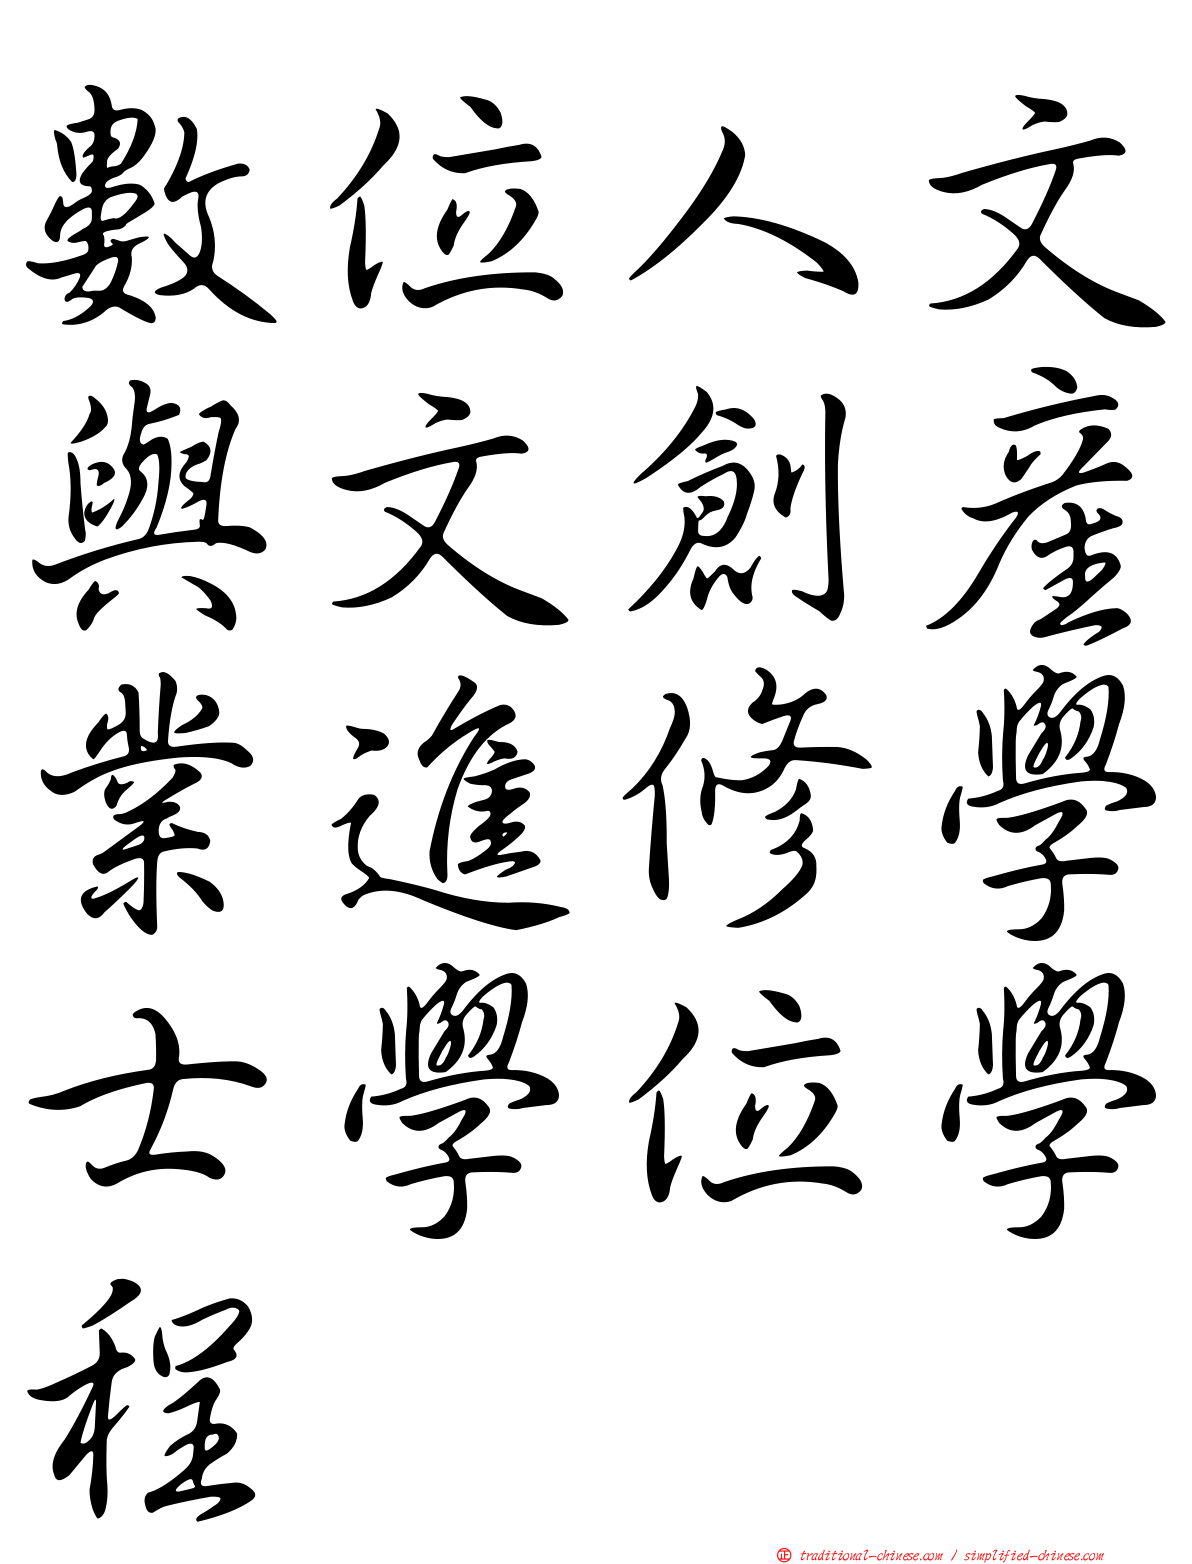 數位人文
與文創產
業進修學
士學位學
程
正 traditional-chinese.com / simplified-chinese.com